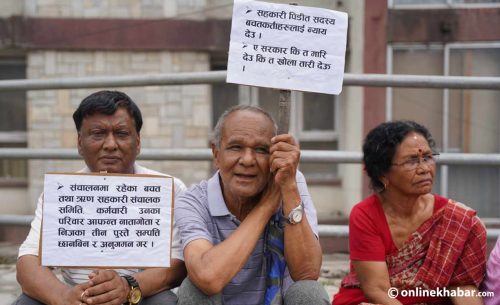 ➢ सहकारी पिडीत सदस्य
बचतकर्ताहरुलाई न्याय
देउ ।
➢ ए सरकार कि त मारि
देउ कि त खोला तारी देऊ
।
➢ संचालनमा रहेका बचत
तथा ऋण सहकारी संचालक
समिति, कर्मचारी उनका
परिवार आफन्त नातागोता र
निजका तीन पुस्ते सम्पत्ति
छानबिन र अनुगमन गर ।
onlinekhabar.com